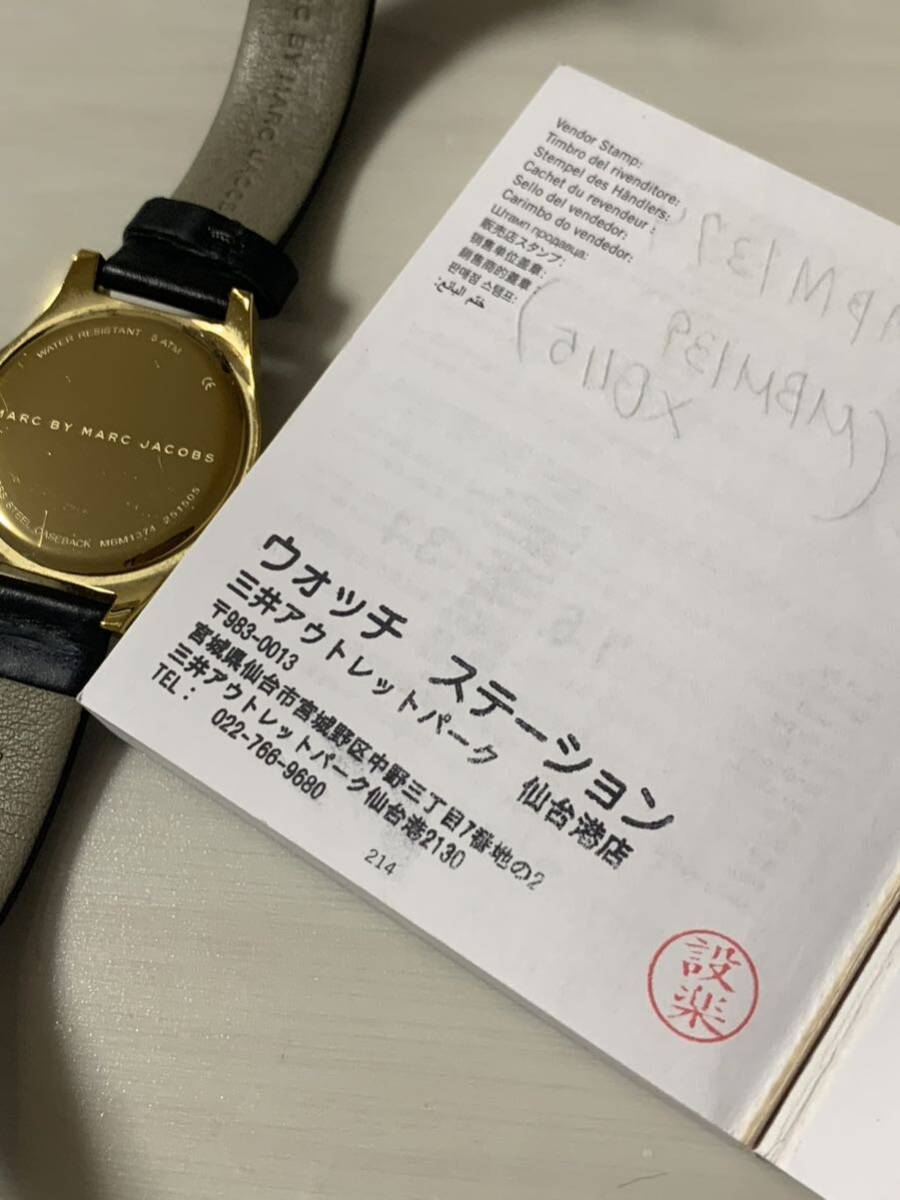 MARC BY MARC JACOBS
WATER RESISTANT 5 ATM
CE
MARC BY MARC JACOBS
STEEL CASEBACK MBM1374 251505
Vendor Stamp:
Timbro del rivenditore:
Stempel des Händlers:
Cachet du revendeur :
Sello del vendedor:
Carimbo do vendedor:
Штамп продавца:
販売店スタンプ:
销售单位盖章:
銷售商的蓋章:
판매점 스탬프:
ختم البائع:
MBM137
(MBM139
X0115)
ウオッチ ステーション
三井アウトレットパーク 仙台港店
〒983-0013
宮城県仙台市宮城野区中野三丁目7番地の2
三井アウトレットパーク仙台港2130
TEL: 022-766-9680
214
設楽